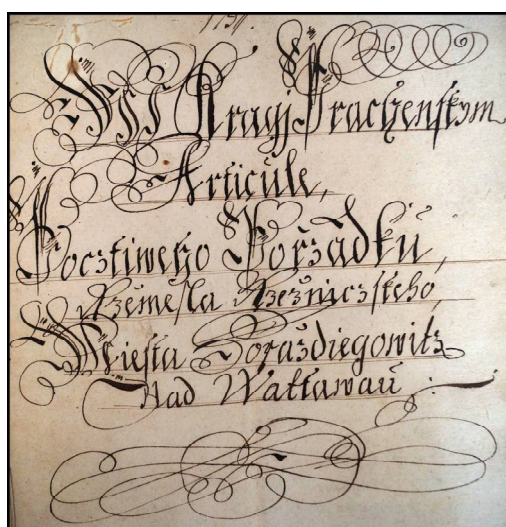 Kragj Prachenskym
Articule,
Pocztiweho Poržadku,
Rzemesla Rzezniczskeho,
Miesta Horazdiegowitz
Nad Wattawau